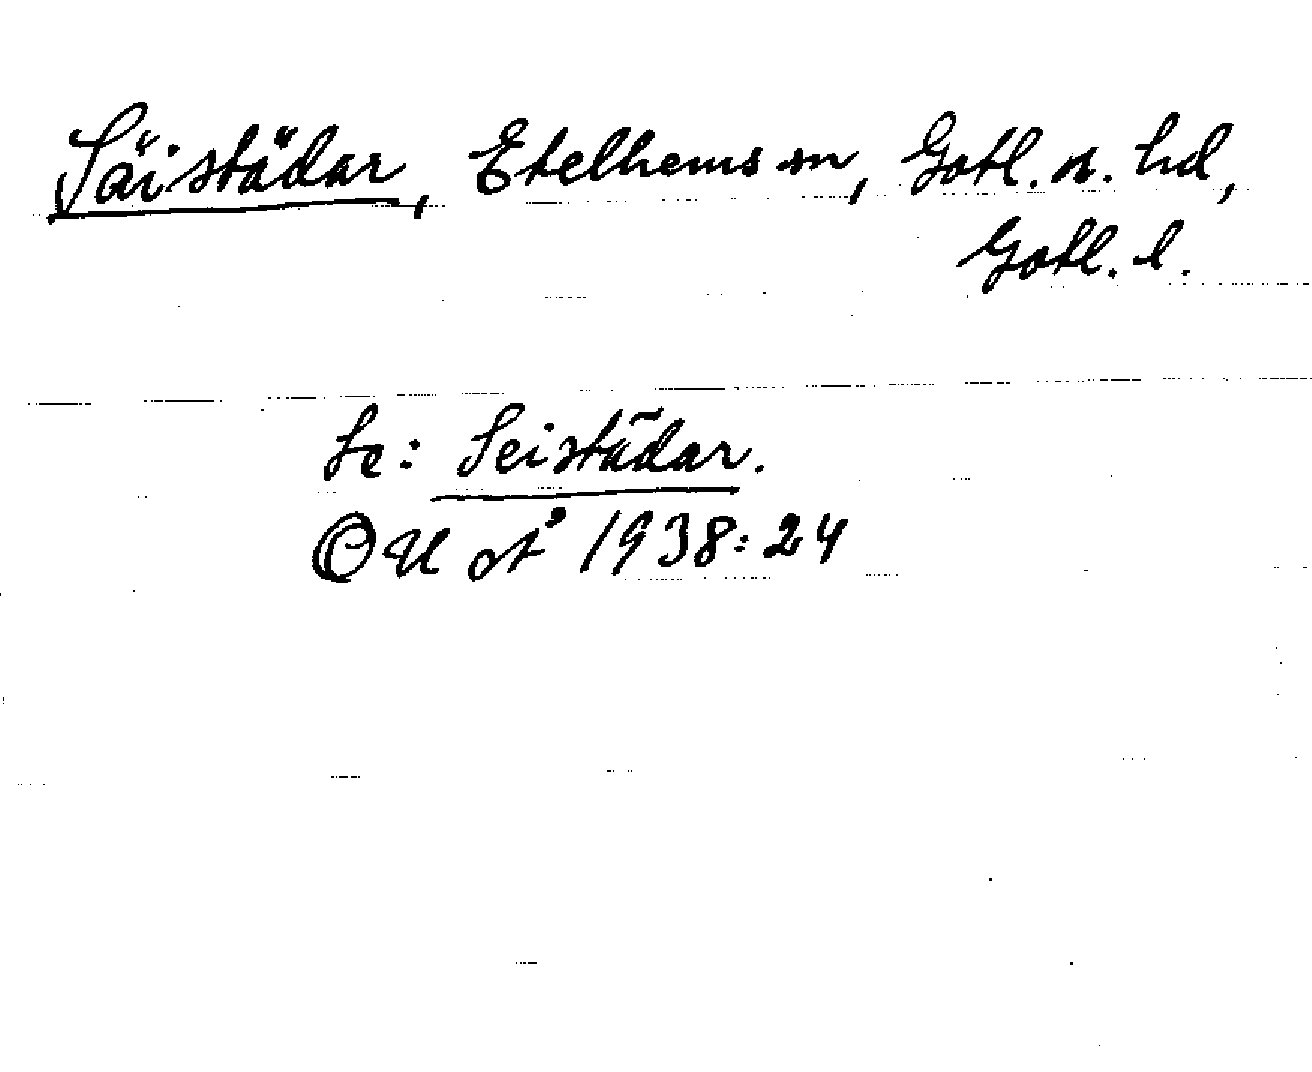 Säistädar, Etelhems sn, Gotl. s. hd,
Gotl. l.
Se: Seistädar.
OGU åt 1938:24